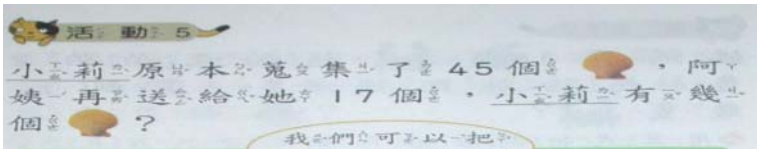 活動5
小莉原本蒐集了45個,阿
姨再送給她17個,小莉有幾
個?
我們可以把